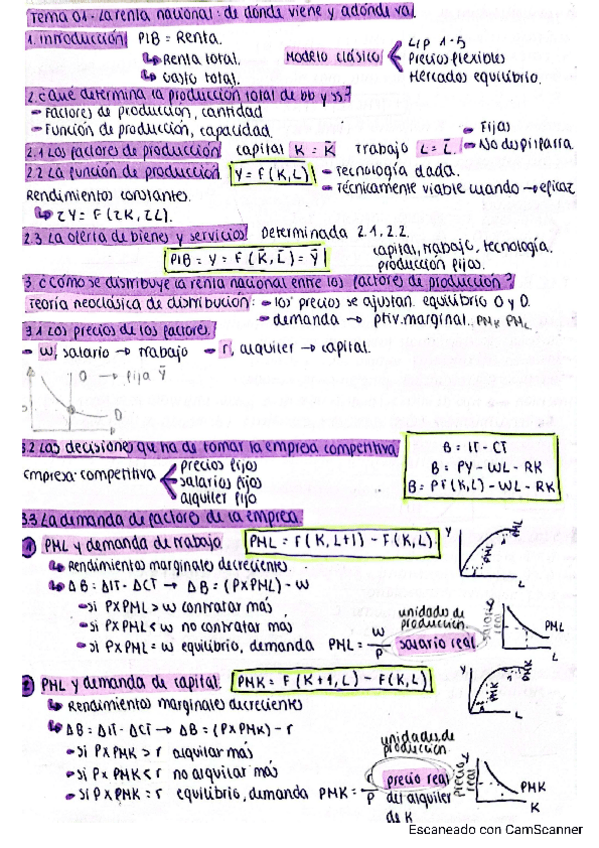 Tema 01 - La renta nacional: de dónde viene y adónde va.
1. Introducción PIB = Renta.
↳ Renta total.
↳ Gasto total.
Modelo clásico
L/P 1-5
Precios flexibles
Mercados equilibrio.
2. ¿Qué determina la producción total de bb y ss?
- Factores de producción, cantidad
- Función de producción, capacidad.
2.1 Los factores de producción capital K = K̄ Trabajo L = L̄. - Fijas
- No despilfarra.
2.2 La función de producción Y = F(K,L) - Tecnología dada.
- Técnicamente viable cuando → eficaz
Rendimientos constantes.
↳ zY = F(zK, zL).
2.3 La oferta de bienes y servicios Determinada 2.1, 2.2.
PIB = Y = F(K̄, L̄) = Ȳ capital, trabajo, tecnología.
producción fijas.
3. ¿Cómo se distribuye la renta nacional entre los factores de producción?
Teoría neoclásica de distribución: - los precios se ajustan. equilibrio O y D.
- demanda → ptiv.marginal. PMK PML.
3.1 Los precios de los factores.
- w, salario → trabajo - r, alquiler → capital.
O → fija Ȳ
D
3.2 Las decisiones que ha de tomar la empresa competitiva
Empresa competitiva
precios fijos
salarios fijos
alquiler fijo
B = IT - CT
B = PY - WL - RK
B = PF(K,L) - WL - RK
3.3 La demanda de factores de la empresa
1 PML y demanda de trabajo. PML = F(K, L+1) - F(K,L).
↳ Rendimientos marginales decrecientes.
↳ ΔB = ΔIT - ΔCT → ΔB = (P×PML) - w
- Si P×PML > w contratar más
- Si P×PML < w no contratar más
- Si P×PML = w equilibrio, demanda PML = W/P salario real.
unidades de
producción
Y PML PML L
salario real PML L
2 PML y demanda de capital. PMK = F(K+1, L) - F(K,L)
↳ Rendimientos marginales decrecientes
↳ ΔB = ΔIT - ΔCT → ΔB = (P×PMK) - r
- Si P×PMK > r alquilar más
- Si P×PMK < r no alquilar más
- Si P×PMK = r equilibrio, demanda PMK = r/P precio real
del alquiler
de K
unidades de
producción
Y PMK PMK L
precio real PMK K
Escaneado con CamScanner